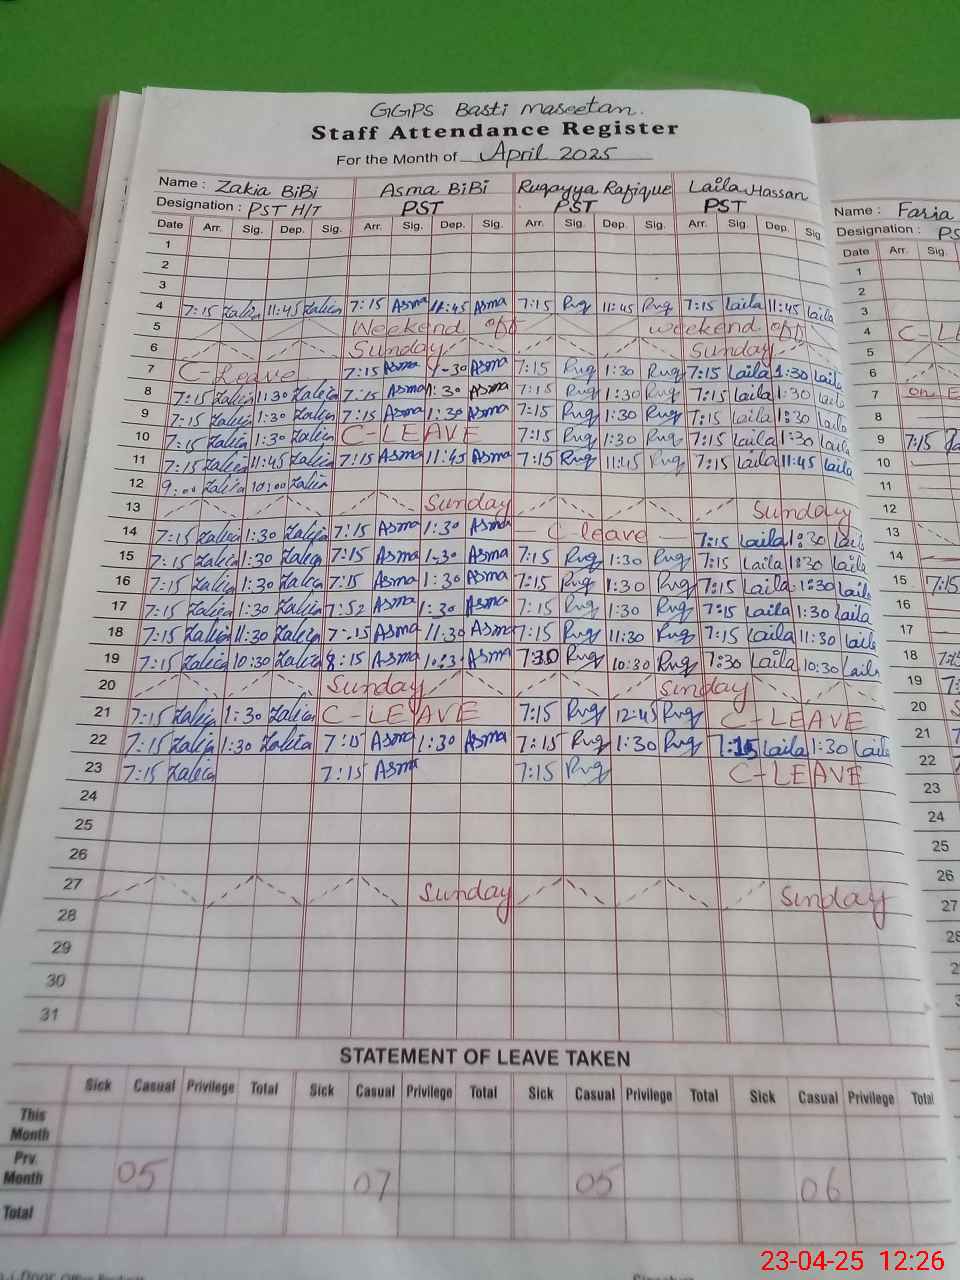 GGPS Basti Maseetan.
Staff Attendance Register
For the Month of April 2025
Name : Zakia BiBi Asma BiBi Ruqayya Rafique Laila Hassan
Designation : PST H/T PST PST PST
Date Arr. Sig. Dep. Sig. Arr. Sig. Dep. Sig. Arr. Sig. Dep. Sig. Arr. Sig. Dep. Sig.
1
2
3
4 7:15 Zakia 11:45 Zakia 7:15 Asma 11:45 Asma 7:15 Ruq 11:45 Ruq 7:15 Laila 11:45 Laila
5 Weekend off weekend off
6 Sunday Sunday
7 C-Leave 7:15 Asma 1-30 Asma 7:15 Ruq 1:30 Ruq 7:15 Laila 1:30 Laila
8 7:15 Zakia 1:30 Zakia 7:15 Asma 1:30 Asma 7:15 Ruq 1:30 Ruq 7:15 Laila 1:30 Laila
9 7:15 Zakia 1:30 Zakia 7:15 Asma 1:30 Asma 7:15 Ruq 1:30 Ruq 7:15 Laila 1:30 Laila
10 7:15 Zakia 1:30 Zakia C-LEAVE 7:15 Ruq 1:30 Ruq 7:15 Laila 1:30 Laila
11 7:15 Zakia 11:45 Zakia 7:15 Asma 11:45 Asma 7:15 Ruq 11:45 Ruq 7:15 Laila 11:45 Laila
12 9:00 Zakia 10:00 Zakia
13 Sunday Sunday
14 7:15 Zakia 1:30 Zakia 7:15 Asma 1:30 Asma - C leave - 7:15 Laila 1:30 Laila
15 7:15 Zakia 1:30 Zakia 7:15 Asma 1-30 Asma 7:15 Ruq 1:30 Ruq 7:15 Laila 1:30 Laila
16 7:15 Zakia 1:30 Zakia 7:15 Asma 1:30 Asma 7:15 Ruq 1:30 Ruq 7:15 Laila 1:30 Laila
17 7:15 Zakia 1:30 Zakia 7:52 Asma 1:30 Asma 7:15 Ruq 1:30 Ruq 7:15 Laila 1:30 Laila
18 7:15 Zakia 11:30 Zakia 7:15 Asma 11:30 Asma 7:15 Ruq 11:30 Ruq 7:15 Laila 11:30 Laila
19 7:15 Zakia 10:30 Zakia 8:15 Asma Asma 7:30 Ruq 10:30 Ruq 7:30 Laila 10:30 Laila
20 Sunday Sunday
21 7:15 Zakia 1:30 Zakia C-LEAVE 7:15 Ruq 12:45 Ruq C-LEAVE
22 7:15 Zakia 1:30 Zakia 7:15 Asma 1:30 Asma 7:15 Ruq 1:30 Ruq 7:15 Laila 1:30 Laila
23 7:15 Zakia 7:15 Asma 7:15 Ruq C-LEAVE
24
25
26
27 Sunday Sunday
28
29
30
31
STATEMENT OF LEAVE TAKEN
Sick Casual Privilege Total Sick Casual Privilege Total Sick Casual Privilege Total Sick Casual Privilege Total
This Month
Prv. Month 05 07 05 06
Total
Name : Faria
Designation : PS
Date Arr. Sig.
1
2
3
4 C-LE
5
6
7 on E
8
9 7:15
10
11
12
13
14
15 7:15
16
17
18
19
20
21
22
23
24
25
26
27
28
23-04-25 12:26